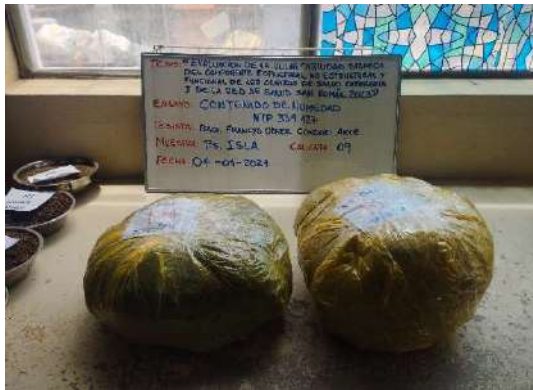 TESIS: "EVALUACION DE LA VULNERABILIDAD SISMICA
DEL COMPONENTE ESTRUCTURAL, NO ESTRUCTURAL Y
FUNCIONAL DE LOS CENTROS DE SALUD CATEGORIA
I DE LA RED DE SALUD SAN ROMÁN, 2023"
ENSAYO: CONTENIDO DE HUMEDAD
NTP 339.127
TESISTA: BACH. FRANCYS
MUESTRA: PS. ISLA CALICATA: 09
FECHA: 04-01-2024